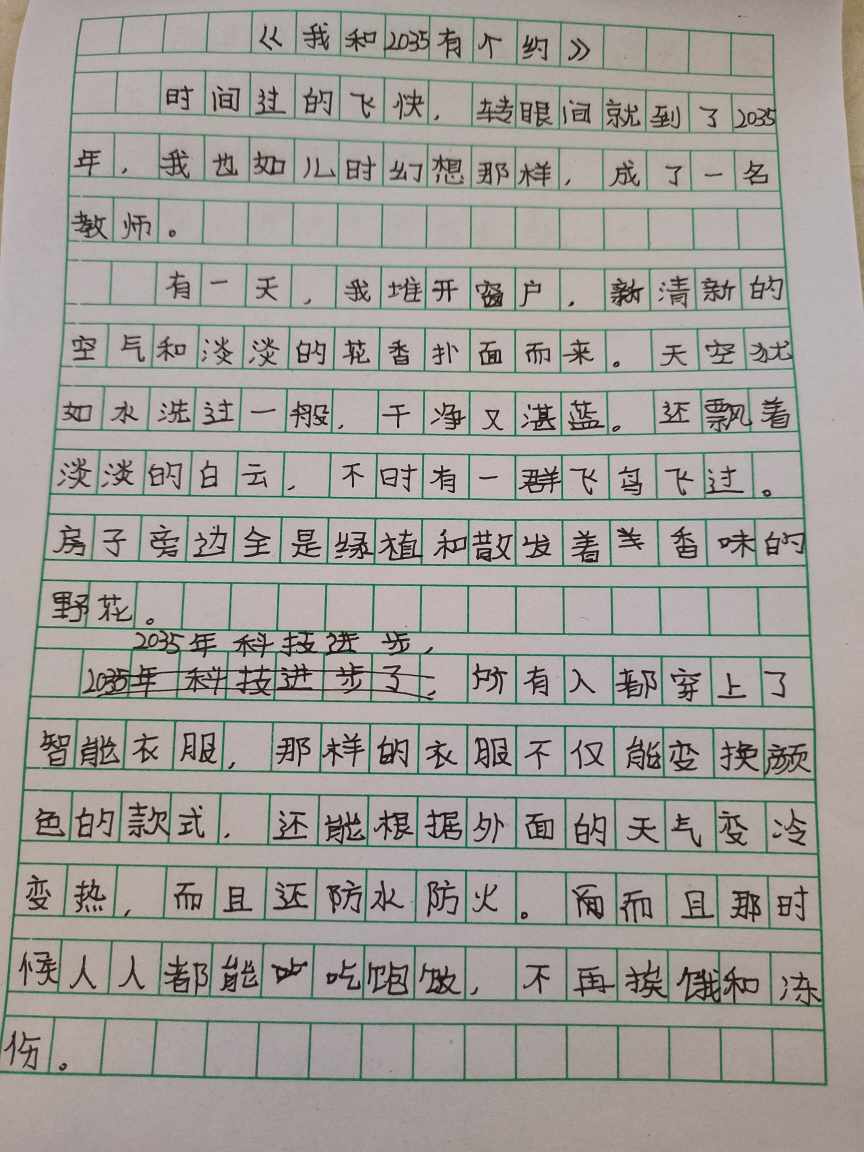 《我和2035有个约》
时间过的飞快，转眼间就到了2035
年，我也如儿时幻想那样，成了一名
教师。
有一天，我堆开窗户，清新的
空气和淡淡的花香扑面而来。天空犹
如水洗过一般，干净又湛蓝。还飘着
淡淡的白云，不时有一群飞鸟飞过。
房子旁边全是绿植和散发着香味的
野花。
2035年科技进步，
2035年科技进步了，所有人都穿上了
智能衣服，那样的衣服不仅能变换颜
色的款式，还能根据外面的天气变冷
变热，而且还防水防火。而且那时
候人人都能吃饱饭，不再挨饿和冻
伤。